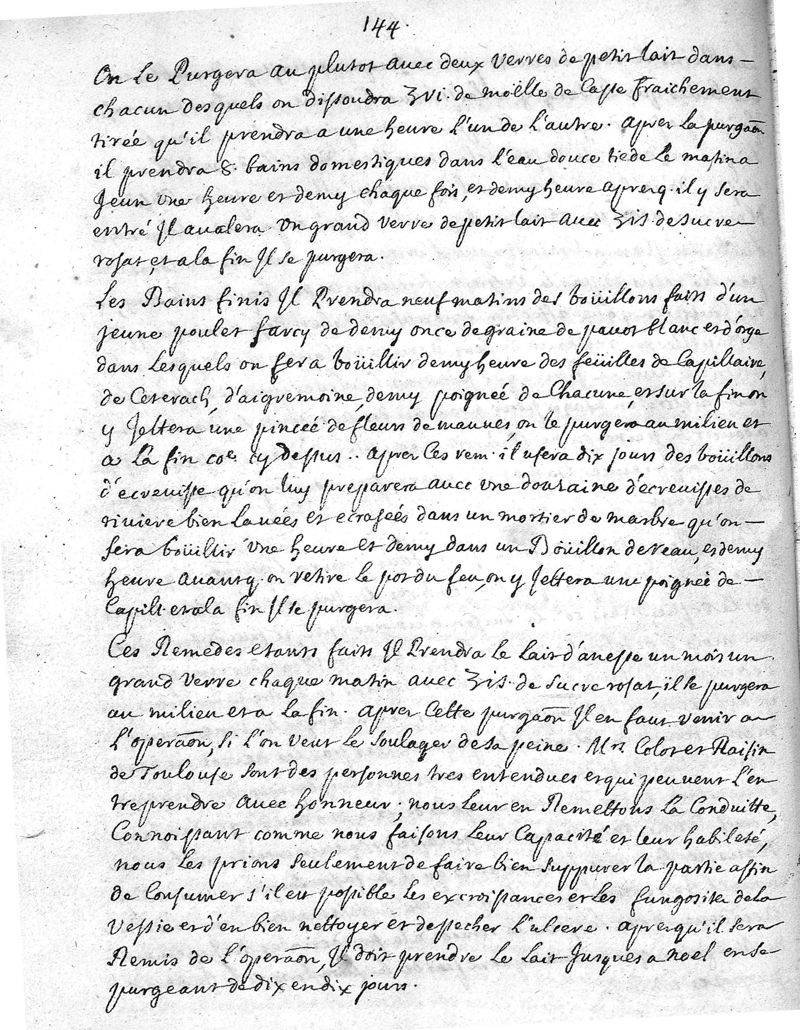 144.
On Le Purgera au plutot avec deux verres de petit lait dans –
chacun desquels on dissoudra ʒvi. de moëlle de Casse fraichement
tirée qu'il prendra a une heure L'un de L'autre. aprez La purgaõn
il prendra 8. bains domestiques dans l'eau douce tiede Le matin a
Jeun une heure et demy chaque fois, et demy heure aprez q. il y sera
entré Il avalera un grand verre de petit lait avec ʒis. de sucre
rosat, et a la fin Il se purgera.
Les Bains finis Il Prendra neuf matins des boüillons faits d'un
jeune poulet farcy de demy once de graine de pavot blanc et d'orge
dans Lesquels on fera boüillir demy heure des feüilles de Capillaire,
de Ceterach, d'aigremoine, demy poignée de Chacune, et sur la fin on
y Jettera une pinceé de fleurs de mauves, on le purgera au milieu et
a La fin coe. cy dessus.. aprez Ces rem. il usera dix jours des boüillons
d'écrevisse qu'on luy preparera avec une douzaine d'écrevisses de
riviere bien Lavées et ecrasées dans un mortier de marbre qu'on –
fera boüillir une heure et demy dans un Boüillon de veau, et demy
heure avant q. on retire le pot du feu, on y Jettera une poignée de –
Capill. et a la fin Il se purgera.
Ces Remedes etants faits Il Prendra Le Lait d'anesse un mois un
grand verre chaque matin avec ʒis. de sucre rosat, il se purgera
au milieu et a La fin. aprez Cette purgaõn Il en faut venir a
L'operaõn, si L'on veut Le soulager de sa peine. Mrs Colot et Raisin
de Toulouse sont des personnes tres entendues et qui peuvent L'en
treprendre avec honneur; nous Leur en Remettons La Conduitte,
Connoissant comme nous faisons Leur Capacité et leur habileté,
nous les prions seulement de faire bien suppurer la partie affin
de Consumer s'il est possible Les excroissances et Les fungosite de la
Vessie et d'en bien nettoyer et dessecher L'ulcere. aprez qu'il sera
Remis de L'operaõn, Il doit prendre Le Lait Jusques a noel en se
purgeant de dix en dix jours.